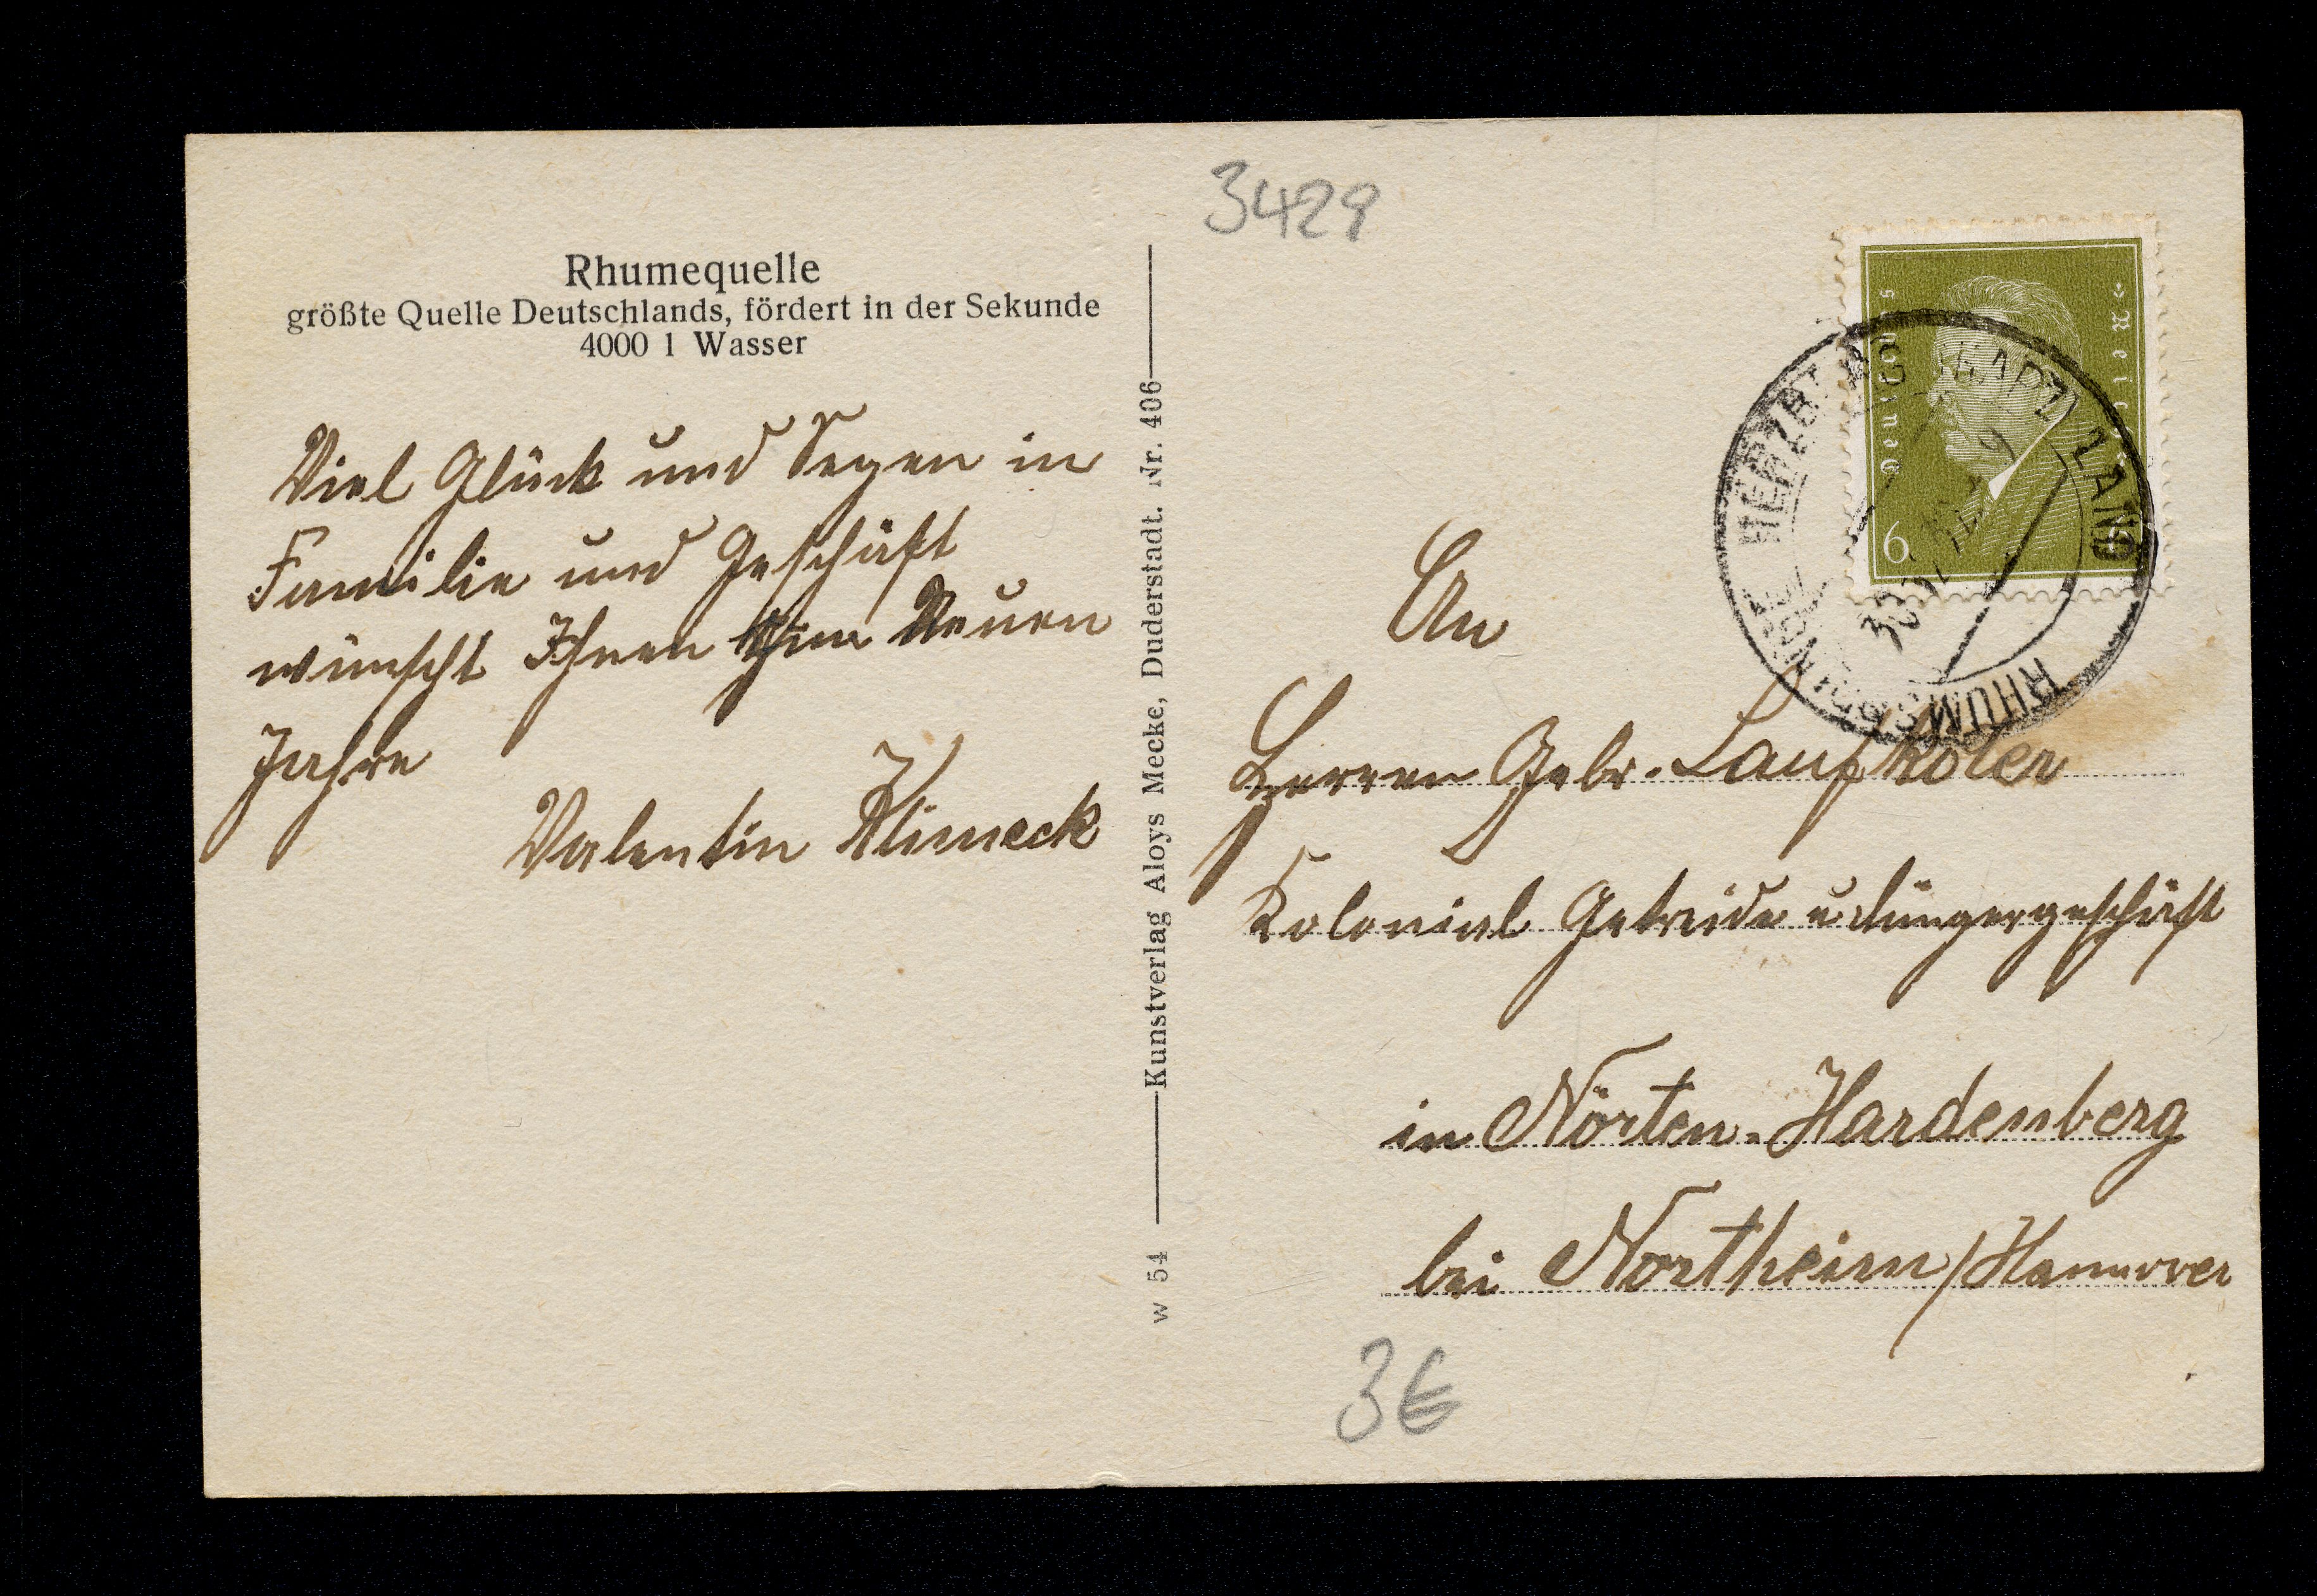 3429
Rhumequelle
größte Quelle Deutschlands, fördert in der Sekunde
4000 l Wasser
Viel Glück und Segen in
Familie und Geschäft
wünscht Ihnen zum Neuen
Jahre
Valentin Klimeck
w 54 Kunstverlag Aloys Mecke, Duderstadt. Nr. 406
Deutsches Reich
6
HARZ LAND
RHUMSPRINGE
An
Herren Gebr. Laufköter
Kolonial Getreide u düngergeschäft
in Nörten-Hardenberg
bei Northeim/Hannover
3€